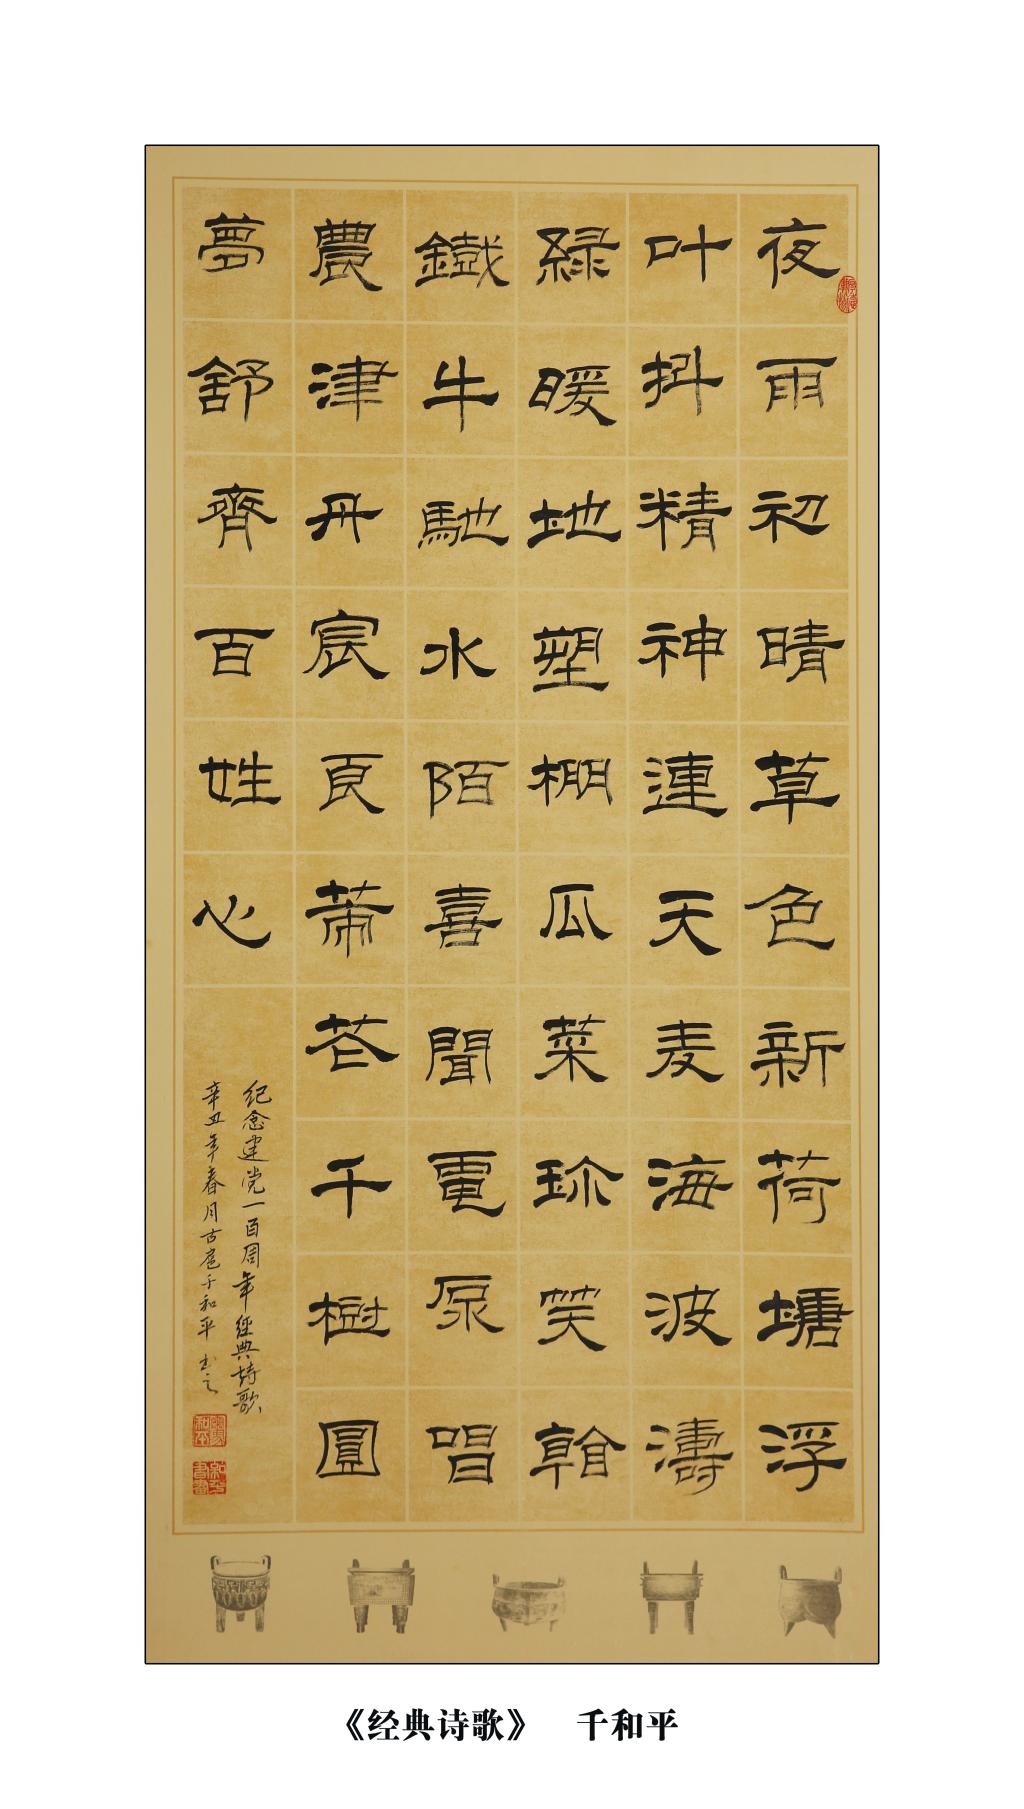 夜雨初晴草色新荷塘浮
叶抖精神連天麦海波濤
緑暖地塑棚瓜菜珎笑翰
鐵牛馳水陌喜聞電泵唱
農津丹宸頁芾芒千樹圓
夢舒齊百姓心
纪念建党一百周年經典诗歌
辛丑年春月古扈千和平书之
《经典诗歌》 千和平